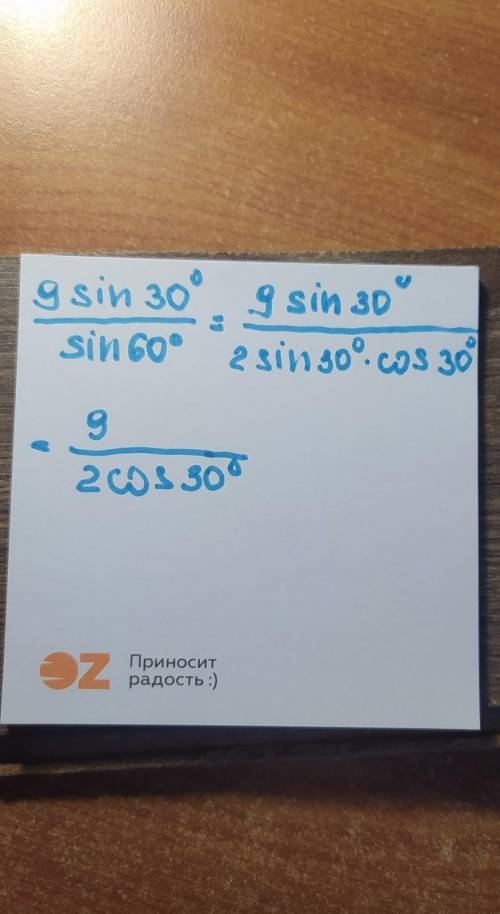 9 sin 30° / sin 60° = 9 sin 30° / 2 sin 30° · cos 30°
= 9 / 2 cos 30°
OZ Приносит
радость :)